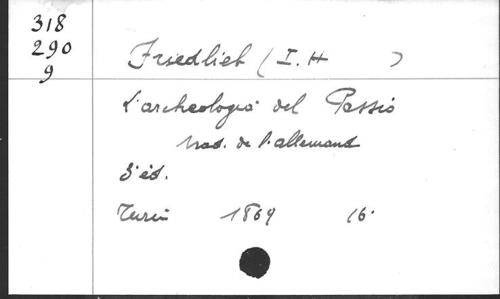 318
290
9
Friedlieb (I. H )
L'archeologia del Passio
trad. de l'allemand
3' éd.
Turin 1869 16'